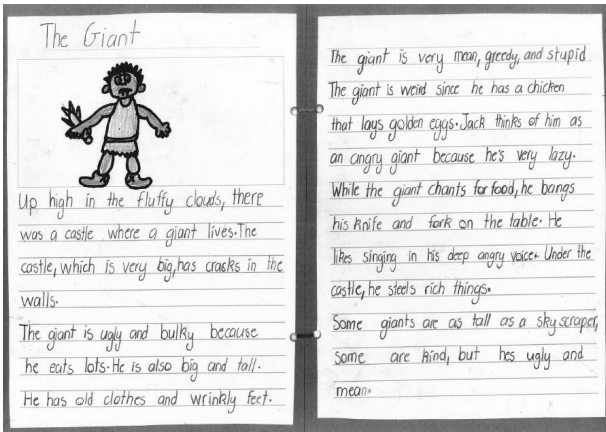 The Giant
Up high in the fluffy clouds, there
was a castle where a giant lives. The
castle, which is very big, has cracks in the
walls.
The giant is ugly and bulky because
he eats lots. He is also big and tall.
He has old clothes and wrinkly feet.
The giant is very mean, greedy, and stupid
The giant is weird since he has a chicken
that lays golden eggs. Jack thinks of him as
an angry giant because he's very lazy.
While the giant chants for food, he bangs
his knife and fork on the table. He
likes singing in his deep angry voice. Under the
castle, he steels rich things.
Some giants are as tall as a skyscraper,
some are kind, but hes ugly and
mean.